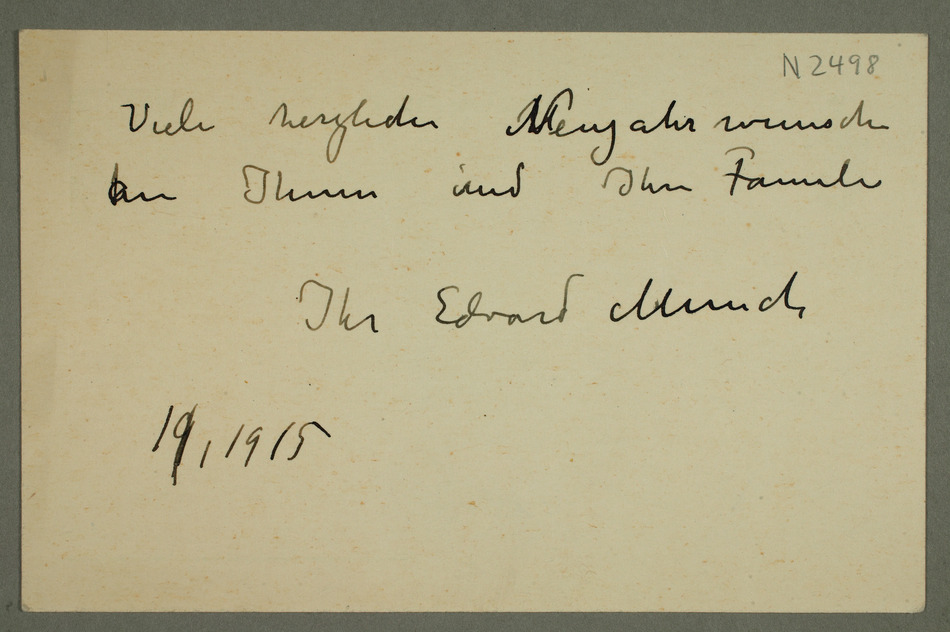 N 2498
Viele herzliche Neujahrwunsche
an Ihnen und Ihre Familie
Ihr Edvard Munch
1915